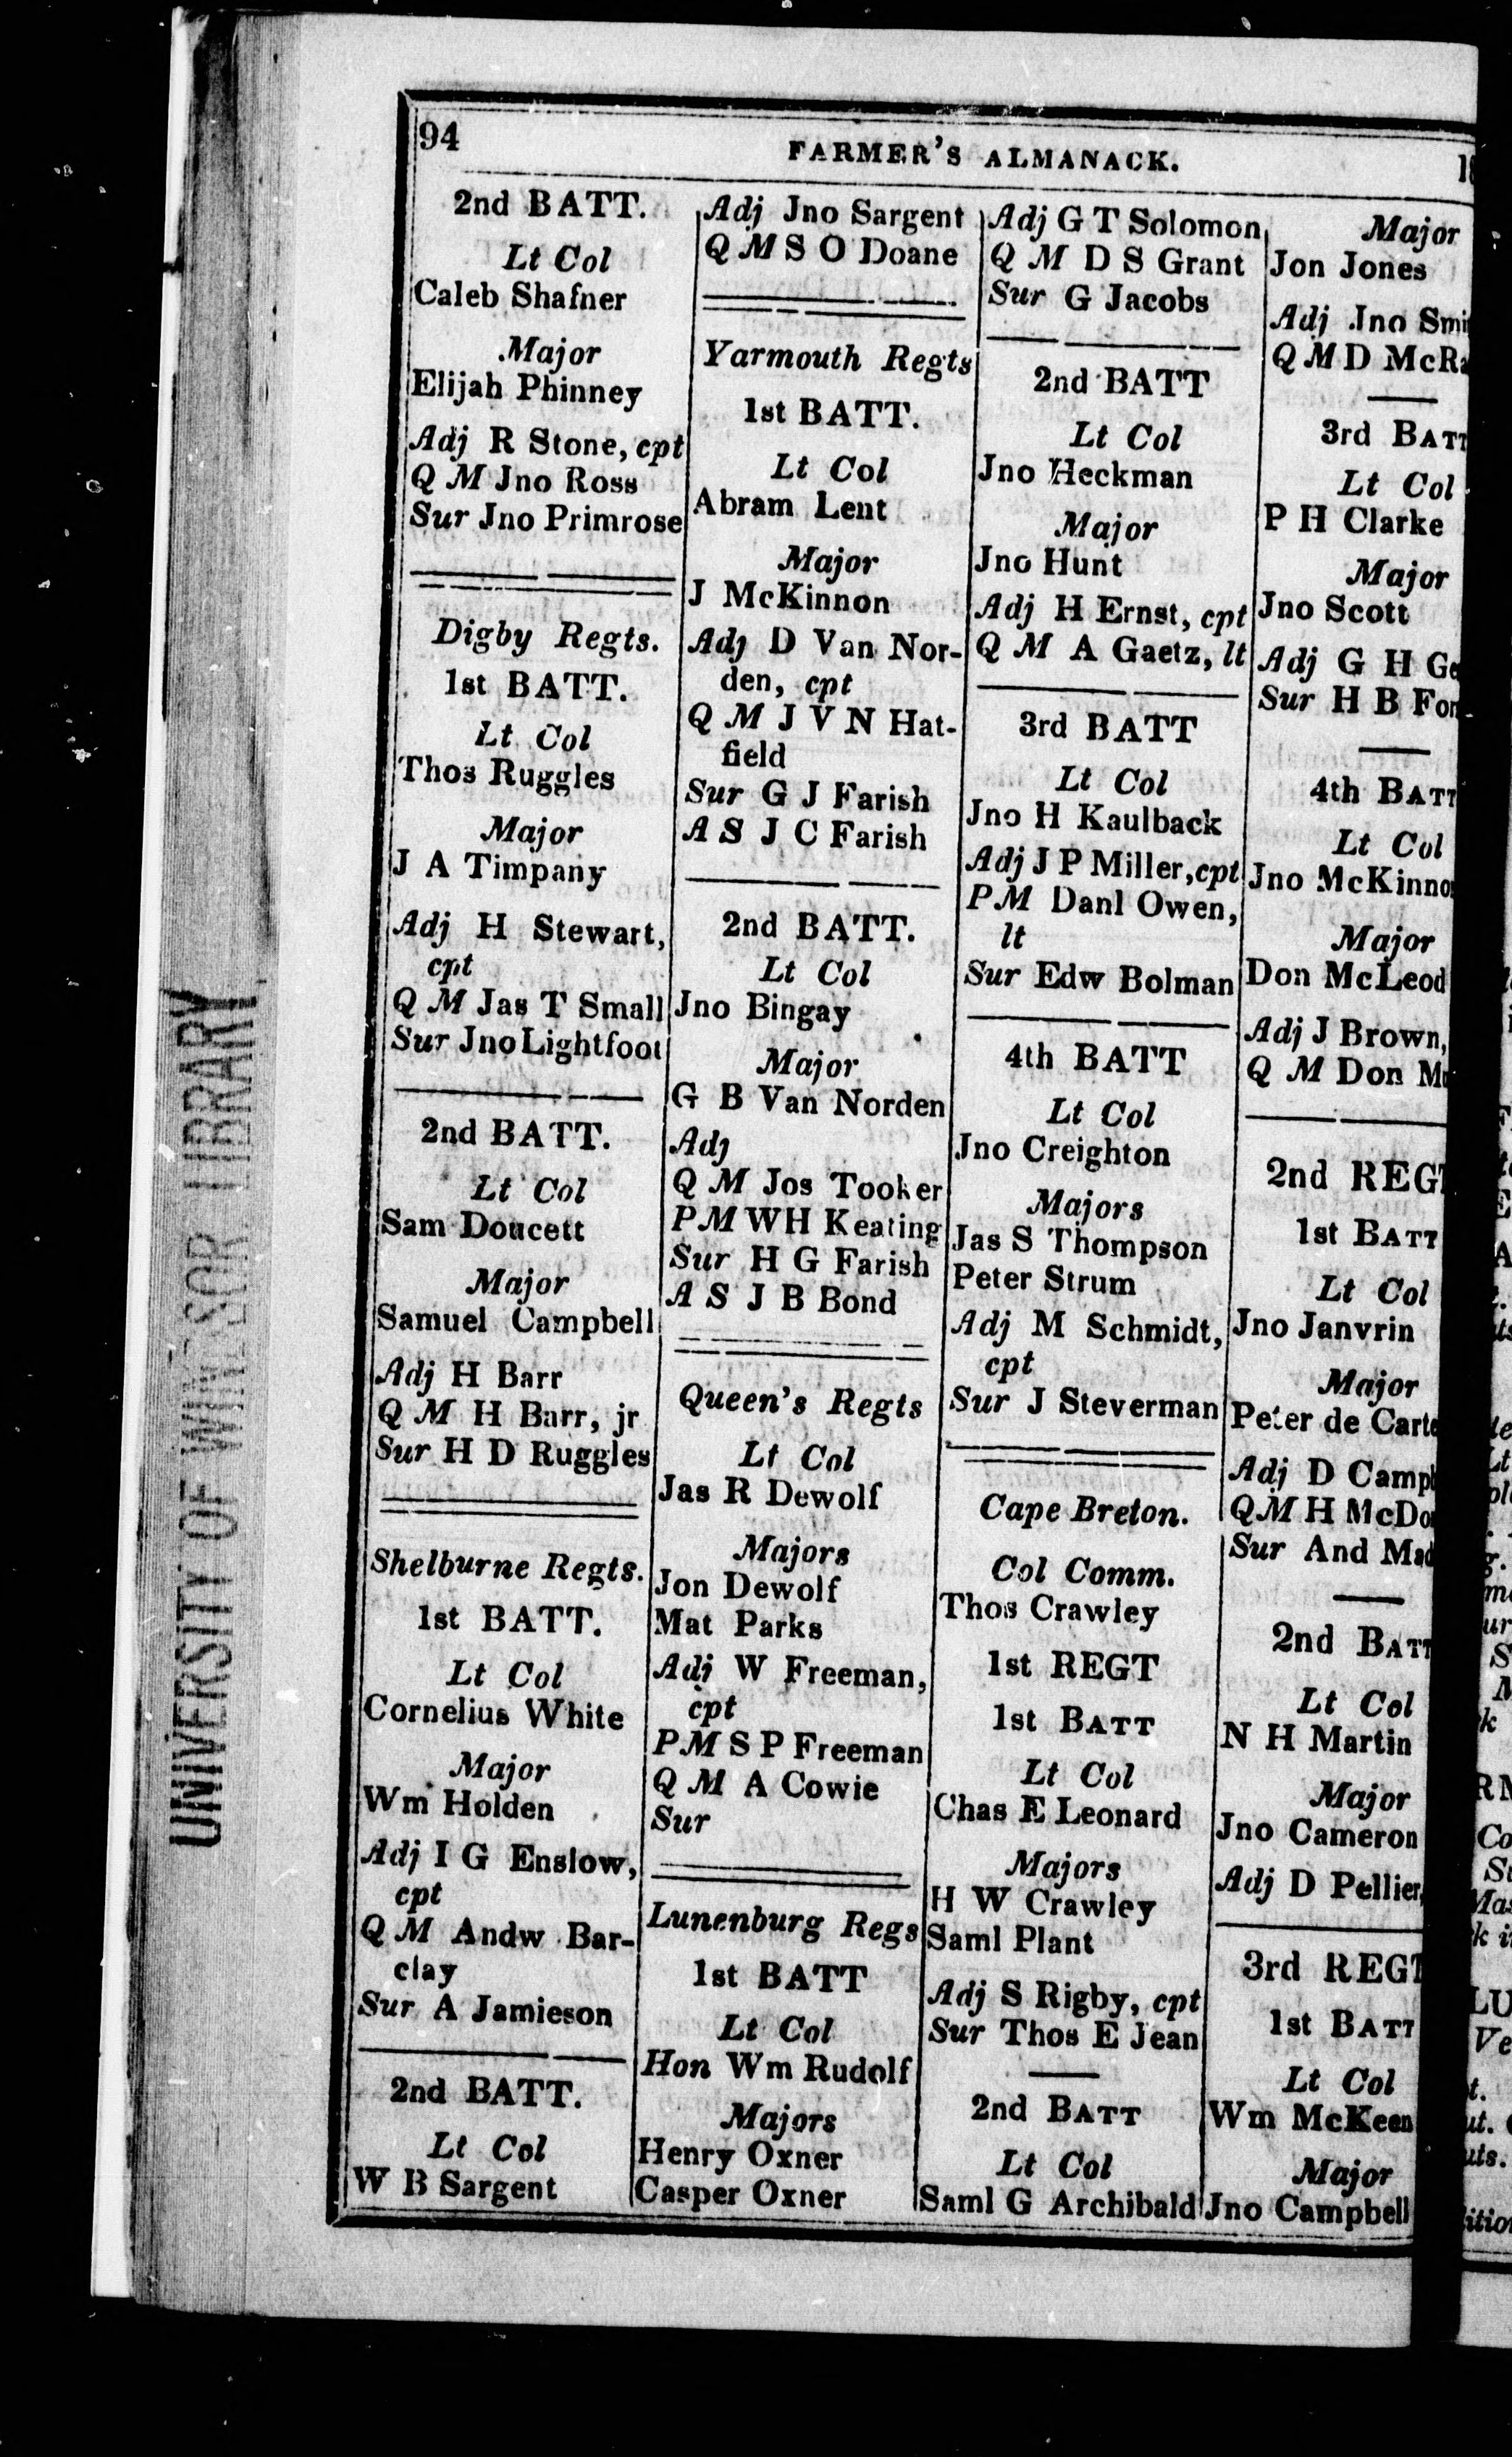 94
FARMER'S ALMANACK.
2nd BATT.
Lt Col
Caleb Shafner
Major
Elijah Phinney
Adj R Stone, cpt
Q M Jno Ross
Sur Jno Primrose
Digby Regts.
1st BATT.
Lt Col
Thos Ruggles
Major
J A Timpany
Adj H Stewart,
cpt
Q M Jas T Small
Sur Jno Lightfoot
2nd BATT.
Lt Col
Sam Doucett
Major
Samuel Campbell
Adj H Barr
Q M H Barr, jr
Sur H D Ruggles
Shelburne Regts.
1st BATT.
Lt Col
Cornelius White
Major
Wm Holden
Adj I G Enslow,
cpt
Q M Andw Bar-
clay
Sur A Jamieson
2nd BATT.
Lt Col
W B Sargent
Adj Jno Sargent
Q M S O Doane
Yarmouth Regts
1st BATT.
Lt Col
Abram Lent
Major
J McKinnon
Adj D Van Nor-
den, cpt
Q M J V N Hat-
field
Sur G J Farish
A S J C Farish
2nd BATT.
Lt Col
Jno Bingay
Major
G B Van Norden
Adj
Q M Jos Tooker
P M W H Keating
Sur H G Farish
A S J B Bond
Queen's Regts
Lt Col
Jas R Dewolf
Majors
Jon Dewolf
Mat Parks
Adj W Freeman,
cpt
P M S P Freeman
Q M A Cowie
Sur
Lunenburg Regs
1st BATT
Lt Col
Hon Wm Rudolf
Majors
Henry Oxner
Casper Oxner
Adj G T Solomon
Q M D S Grant
Sur G Jacobs
2nd BATT
Lt Col
Jno Heckman
Major
Jno Hunt
Adj H Ernst, cpt
Q M A Gaetz, lt
3rd BATT
Lt Col
Jno H Kaulback
Adj J P Miller, cpt
P M Danl Owen,
lt
Sur Edw Bolman
4th BATT
Lt Col
Jno Creighton
Majors
Jas S Thompson
Peter Strum
Adj M Schmidt,
cpt
Sur J Steverman
Cape Breton.
Col Comm.
Thos Crawley
1st REGT
1st BATT
Lt Col
Chas E Leonard
Majors
H W Crawley
Saml Plant
Adj S Rigby, cpt
Sur Thos E Jean
2nd BATT
Lt Col
Saml G Archibald
Major
Jon Jones
Adj Jno
Q M D
3rd BATT
Lt Col
P H Clarke
Major
Jno Scott
Adj G H
Sur H B
4th BATT
Lt Col
Jno McKinnon
Major
Don McLeod
Adj J Brown,
Q M Don
2nd REGT
1st BATT
Lt Col
Jno Janvrin
Major
Peter de
Adj D
Q M H
Sur And
2nd BATT
Lt Col
N H Martin
Major
Jno Cameron
Adj D Pellier,
3rd REGT
1st BATT
Lt Col
Wm McKeen
Major
Jno Campbell
UNIVERSITY OF WINDSOR LIBRARY